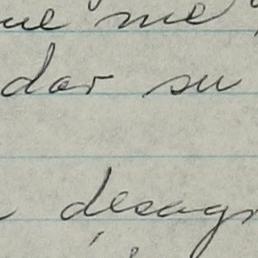 ue me
dar su
desagr